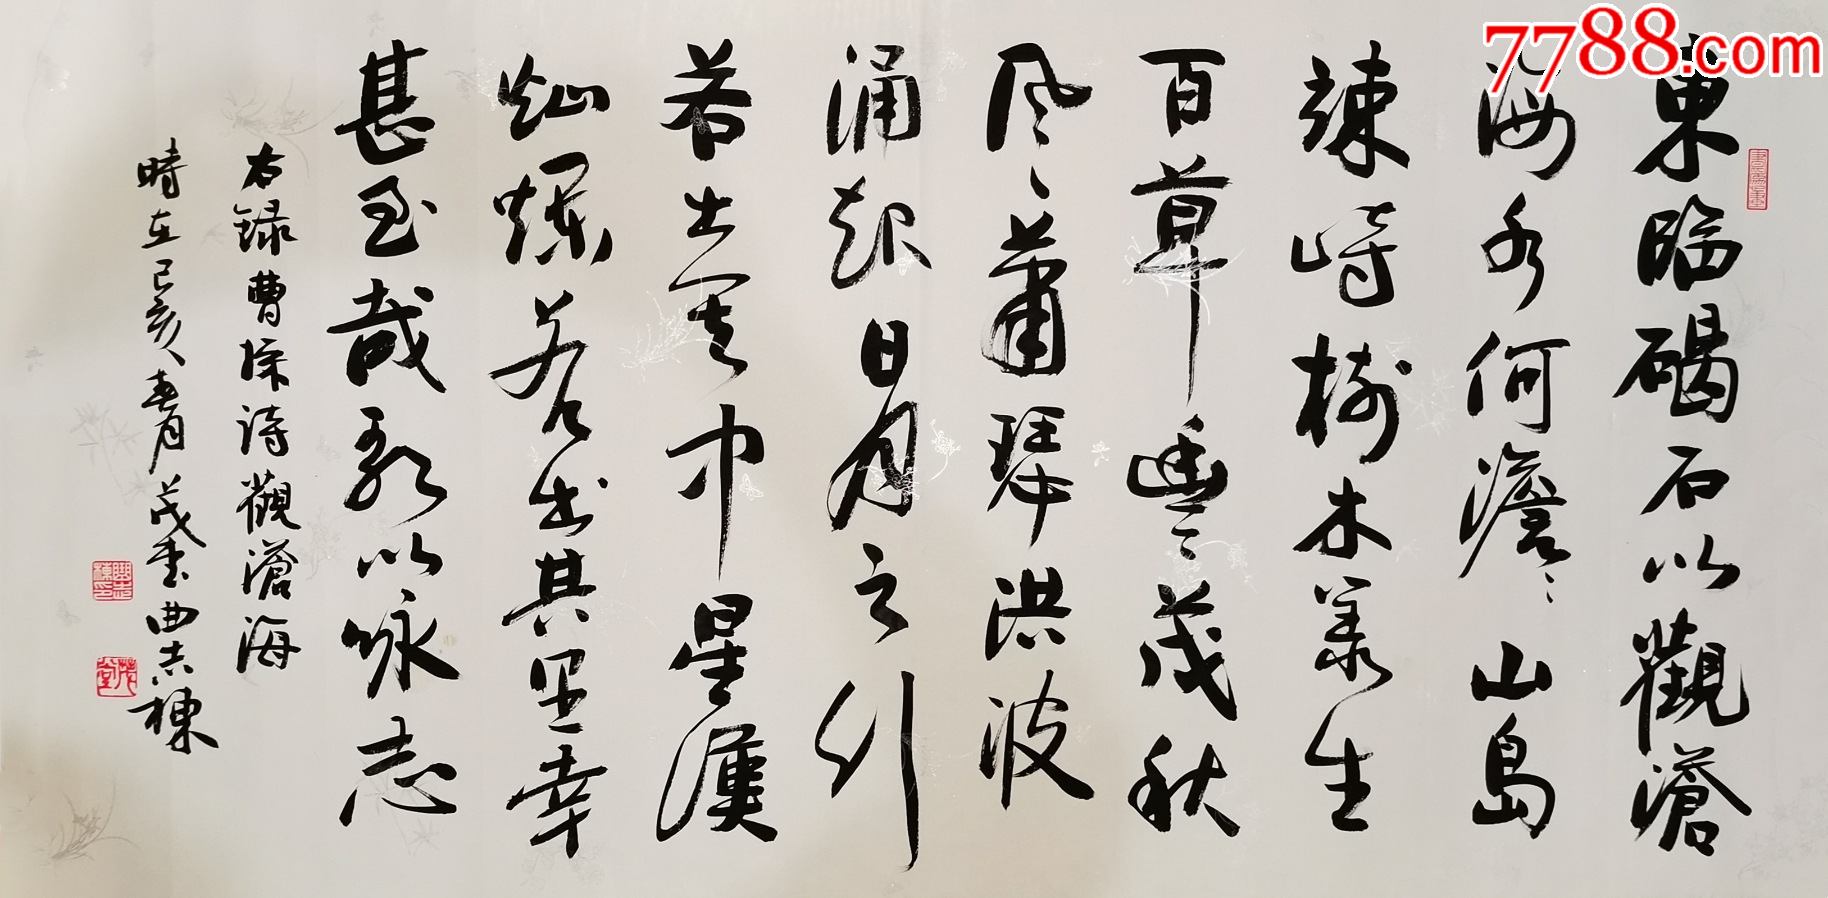 7788.com
東臨碣石以觀滄
海水何澹〻山島
竦峙樹木叢生
百草豐〻茂秋
风蕭瑟洪波
涌起日月之行
若出其中星漢
灿爛若出其里幸
甚至哉歌以咏志
右録曹操诗觀滄海
時在己亥春月茂堂曲志棟
茂堂